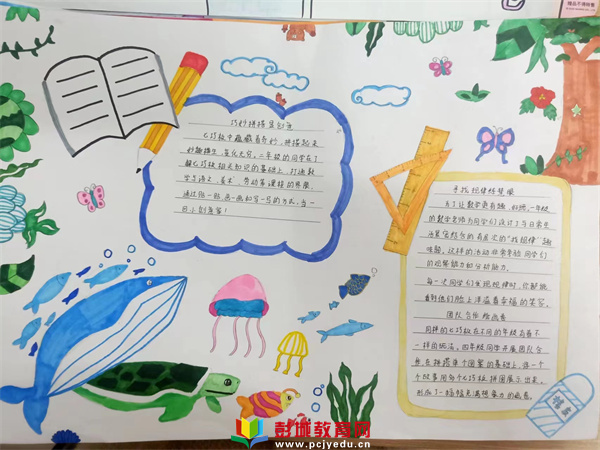 巧妙拼搭显创意
七巧板中蕴藏着奇妙,拼搭起来
妙趣横生,变化无穷。二年级的同学在了
解七巧板相关知识的基础上,打通数
学与语文、美术、劳动等课程的界限,
通过拼一拼画一画和写一写的方式,当一
回小创意家!
寻找规律练慧眼
为了让数学更有趣、好玩,一年级
的数学老师为同学们设计了与日常生
活紧密结合的有层次的“找规律”趣
味体验。这样的活动非常考验同学们
的观察能力和分析能力。
每一次同学们发现规律时,你都能
看到他们脸上洋溢着幸福的笑容。
团队合作绘画卷
同样的七巧板在不同的年级有着不
一样的玩法,四年级同学开展团队合
作,在拼搭单个图案的基础上,将一个
个故事用多个七巧板拼图展示出来,
形成了一幅幅充满想象力的画卷。
橡皮
彭城教育网
www.pcjyedu.cn